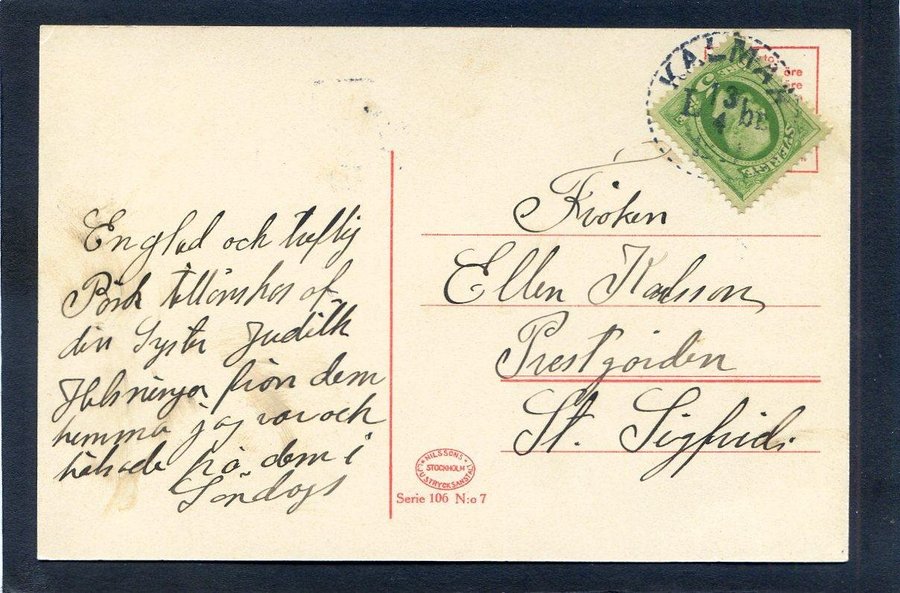 En glad och treflig
Påsk tillönskas af
din Syster Judith
Helsningar från dem
hemma jag var och
hälsade på dem i
Söndags
KALMAR
13
4
Fröken
Ellen Karlsson
Prestgården
St. Sigfrids
NILSSONS
STOCKHOLM
LJUSTRYCKSANSTALT
Serie 106 N:o 7
öre
öre